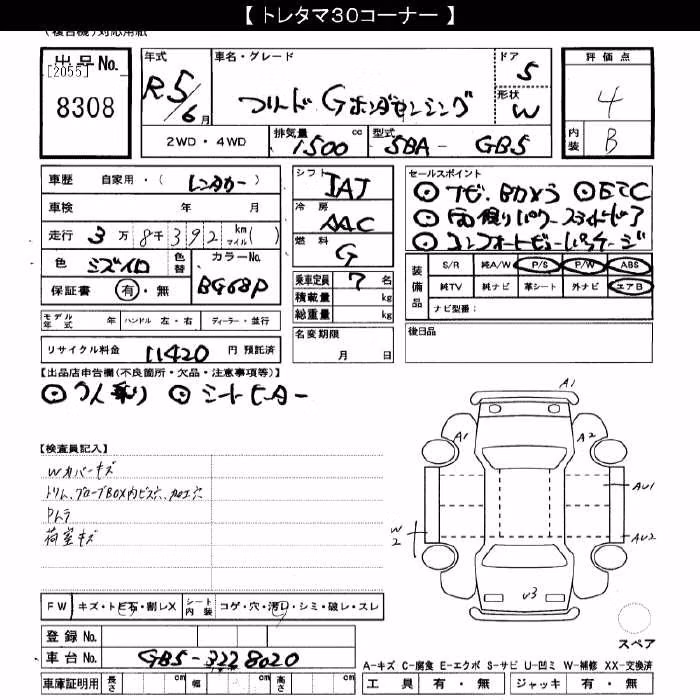 【 トレタマ30コーナー 】
(複合機)対応用紙
出品No.
[2055]
8308
年式
R5/6月
車名・グレード
フリード Gホンダセンシング
ドア
5
形状
W
評価点
4
内装 B
2WD・4WD
排気量 1500 cc
型式 5BA- GB5
車歴 自家用・( レンタカー )
車検 年 月
走行 3万 8千392 km マイル( )
色 ミズイロ 色替
カラーNo. BG68P
保証書 有・無
シフト
IAT
冷房
AAC
燃料
G
乗車定員 7 名
積載量 kg
総重量 kg
名変期限
月 日
セールスポイント
◎ナビ、Bカメラ ◎ETC
◎両側パワースライドドア
◎コンフォートビューパッケージ
装備品
S/R 純A/W P/S P/W ABS
純TV 純ナビ 革シート 外ナビ エアB
ナビ型番:
後日品
モデル年式 年 ハンドル 左・右 ディーラー・並行
リサイクル料金 11420 円 預託済
【出品店申告欄(不良箇所・欠品・注意事項等)】
◎7人乗り ◎シートヒーター
【検査員記入】
Wカバーキズ
トリム、グローブBOX内ビス穴、加工穴
PAラ
荷室キズ
A1
A1
A2
AU1
AU2
W2
V3
スペア
FW キズ・トビ石・割レX シート内装 コゲ・穴・汚レ・シミ・破レ・スレ
登録 No.
車台 No. GB5-3228020
車庫証明用 長さ cm 幅 cm 高さ cm
A-キズ C-腐食 E-エクボ S-サビ U-凹ミ W-補修 XX-交換済
工具 有・無 ジャッキ 有・無